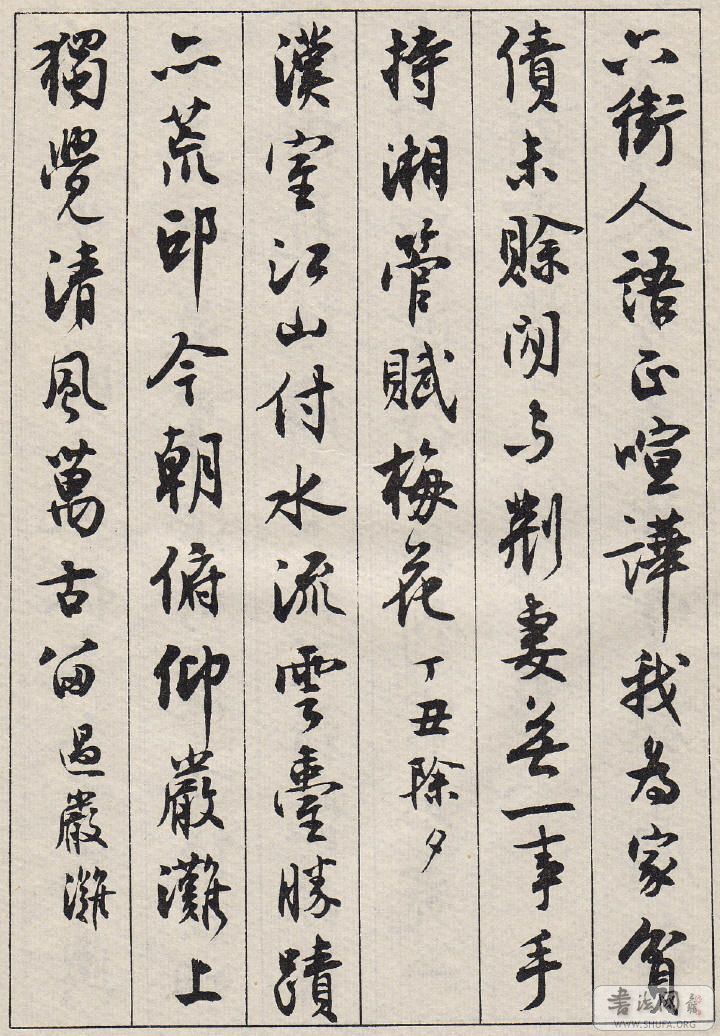 六街人語正喧譁我為家貧
債未賒閒与荆妻無一事手
持湘管賦梅花丁丑除夕
漢室江山付水流雲臺勝蹟
亦荒邱今朝俯仰嚴灘上
獨覺清風萬古留過嚴灘
書法网
WWW.SHUFA.ORG